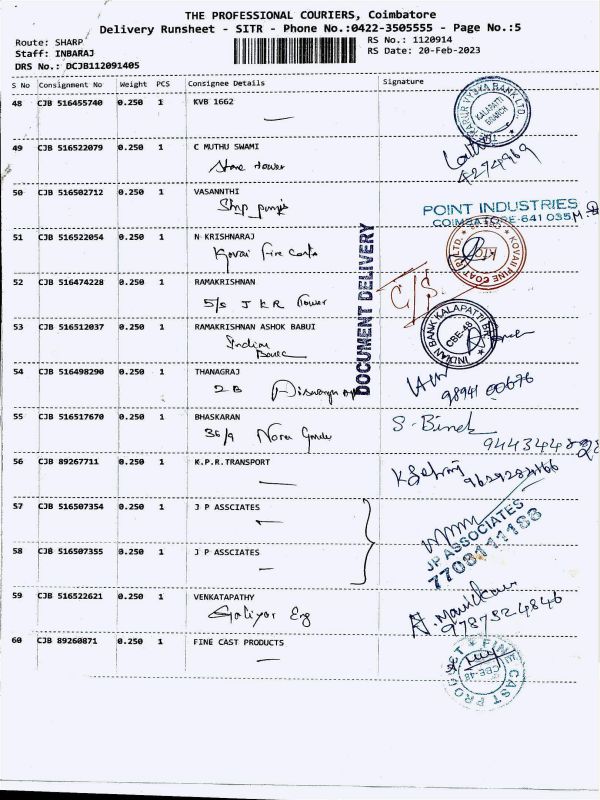 THE PROFESSIONAL COURIERS, Coimbatore
Delivery Runsheet - SITR - Phone No.:0422-3505555 - Page No.:5
Route: SHARP
RS No.: 1120914
Staff: INBARAJ
RS Date: 20-Feb-2023
DRS No.: DCJB112091405
S No Consignment No Weight PCS Consignee Details Signature
48 CJB 516455740 0.250 1 KVB 1662
KARUR VYSYA BANK LTD.
KALAPATTI
BRANCH
49 CJB 516522079 0.250 1 C MUTHU SWAMI
Stone tower
4274969
50 CJB 516502712 0.250 1 VASANNTHI
Shrp pumps
POINT INDUSTRIES
COIMBATORE-641 035
51 CJB 516522054 0.250 1 N KRISHNARAJ
Kovai Fine Coats
KOVAI FINE COAT (P) LTD.
DOCUMENT DELIVERY
52 CJB 516474228 0.250 1 RAMAKRISHNAN
5/8 J K R Tower
C/S
53 CJB 516512037 0.250 1 RAMAKRISHNAN ASHOK BABUI
Indian
Bank
INDIAN BANK KALAPATTI BR
CBE-48
54 CJB 516498290 0.250 1 THANAGRAJ
2 B
98941 00676
55 CJB 516517670 0.250 1 BHASKARAN
36/9
S. Binch
56 CJB 89267711 0.250 1 K.P.R.TRANSPORT
57 CJB 516507354 0.250 1 J P ASSCIATES
JP ASSOCIATES
58 CJB 516507355 0.250 1 J P ASSCIATES
7708111188
59 CJB 516522621 0.250 1 VENKATAPATHY
9787524846
60 CJB 89260871 0.250 1 FINE CAST PRODUCTS
FINE CAST PRODUCT
CBE-48